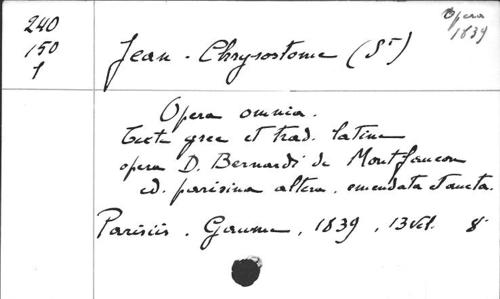 240
150
1
Opera
1839
Jean-Chrysostome (St)
Opera omnia.
Texte grec et trad. latine
opera D. Bernardi de Montfaucon
ed. parisina altera, emendata et aucta.
Parisiis. Gaume, 1839, 13 vol. 8°